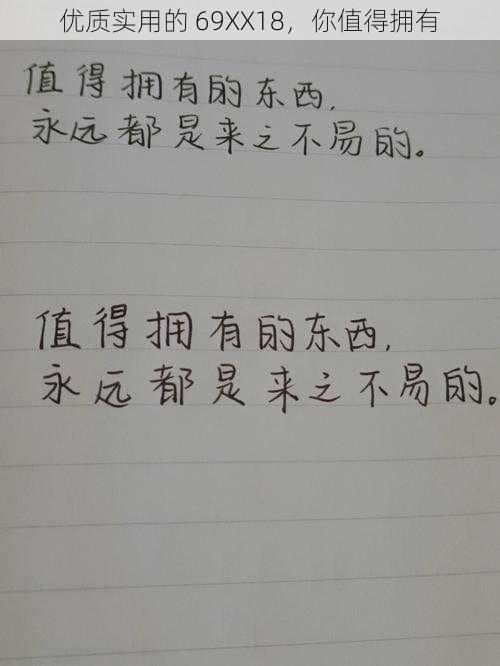 优质实用的 69XX18，你值得拥有
值得拥有的东西,
永远都是来之不易的。
值得拥有的东西,
永远都是来之不易的。